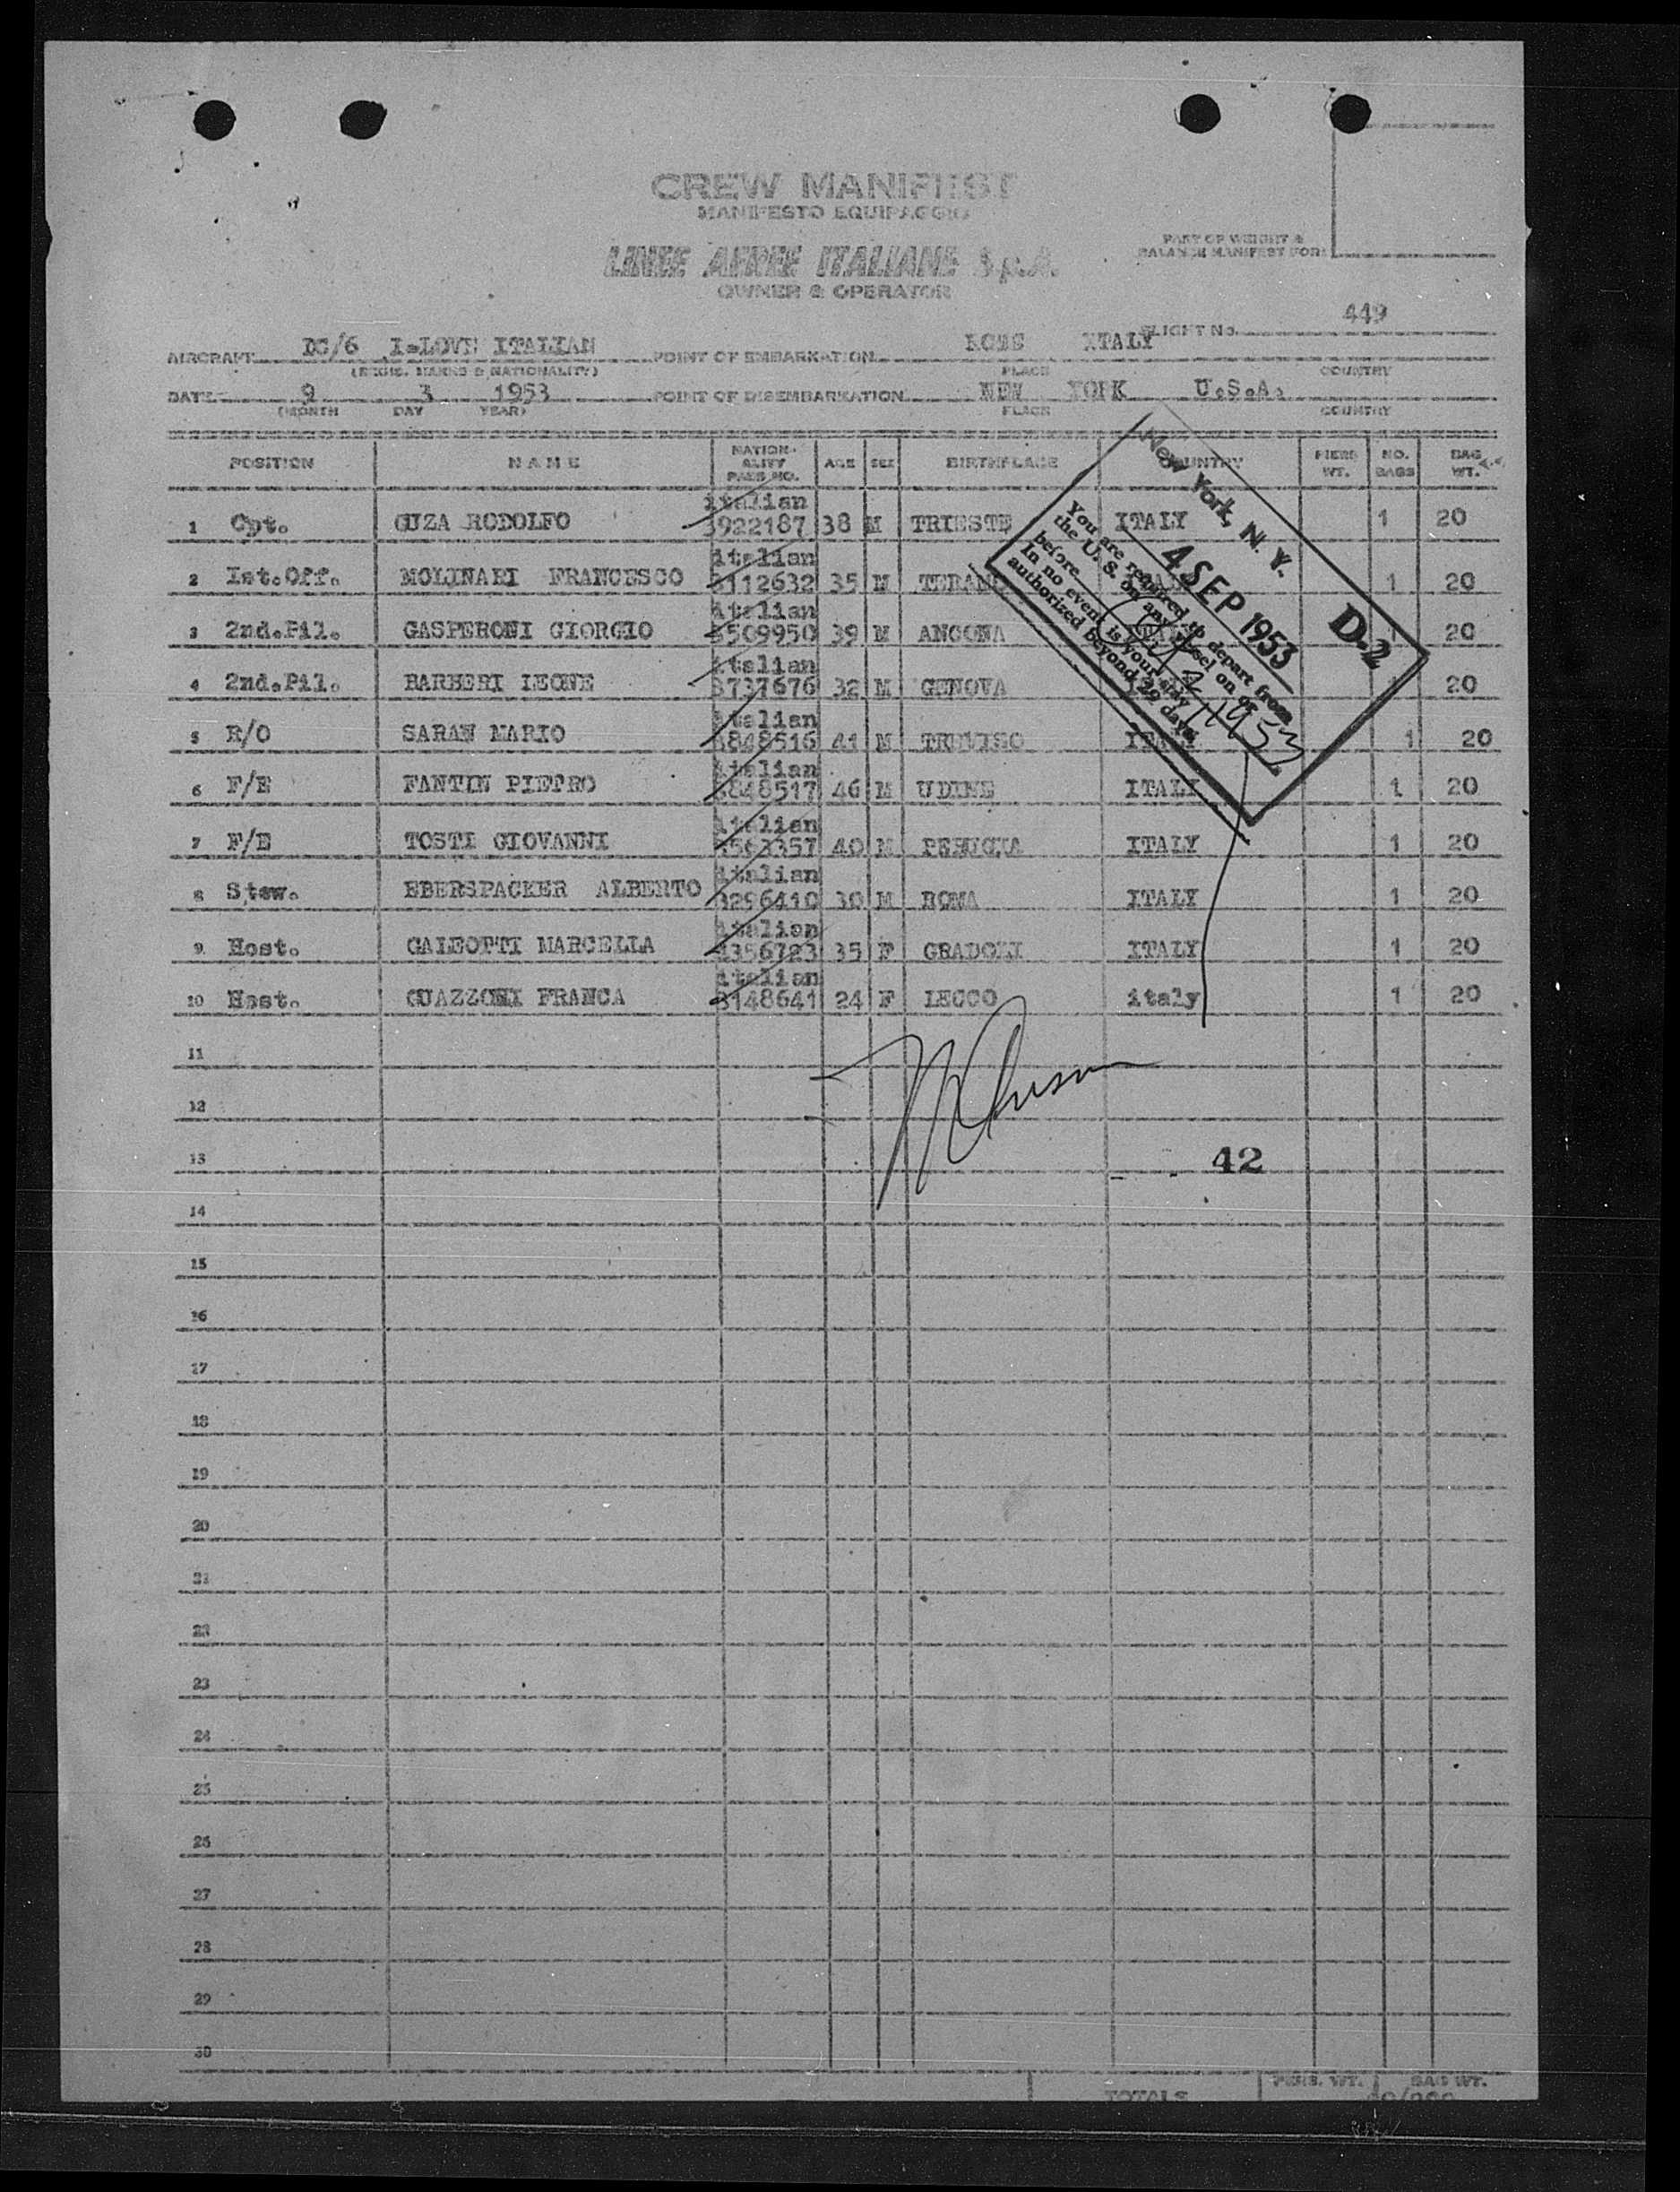 CREW MANIFEST
MANIFESTO EQUIPAGGIO
LINEE AEREE ITALIANE S.p.A.
OWNER & OPERATOR
PART OF WEIGHT &
BALANCE MANIFEST FOR:
FLIGHT No. 449
AIRCRAFT DC/6 I-LOVE ITALIAN POINT OF EMBARKATION ROME ITALY
(REGIS. MARKS & NATIONALITY) PLACE COUNTRY
DATE 9 3 1953 POINT OF DISEMBARKATION NEW YORK U.S.A.
(MONTH DAY YEAR) PLACE COUNTRY
POSITION NAME NATION-ALITY PASS NO. AGE SEX BIRTHPLACE COUNTRY PIERS WT. NO. BAGS BAG WT.
1 Cpt. GUZA RODOLFO italian 3922187 38 M TRIESTE ITALY 1 20
2 Ist.Off. MOLINARI FRANCESCO italian 3112632 35 M TERAMO 1 20
3 2nd.Pil. GASPERONI GIORGIO italian 509950 39 M ANCONA ITALY 20
4 2nd.Pil. BARBERI LEONE italian 3737676 32 M GENOVA 20
5 R/O SARAN MARIO italian 848516 41 M TREVISO ITALY 1 20
6 F/E FANTIN PIETRO italian 848517 46 M UDINE ITALY 1 20
7 F/E TOSTI GIOVANNI italian 563357 40 M PERUGIA ITALY 1 20
8 Stew. EBERSPACKER ALBERTO italian 3296410 30 M ROMA ITALY 1 20
9 Host. GALEOTTI MARCELLA italian 356723 35 F GRADOLI ITALY 1 20
10 Host. GUAZZONI FRANCA italian 3148641 24 F LECCO italy 1 20
New York, N. Y.
4 SEP 1953 D-2
You are required to depart from
the U. S. on any vessel on or
before 1953
In no event is your stay
authorized beyond 29 days
11
12
13 42
14
15
16
17
18
19
20
21
22
23
24
25
26
27
28
29
30
TOTALS PERS. WT. BAG WT.